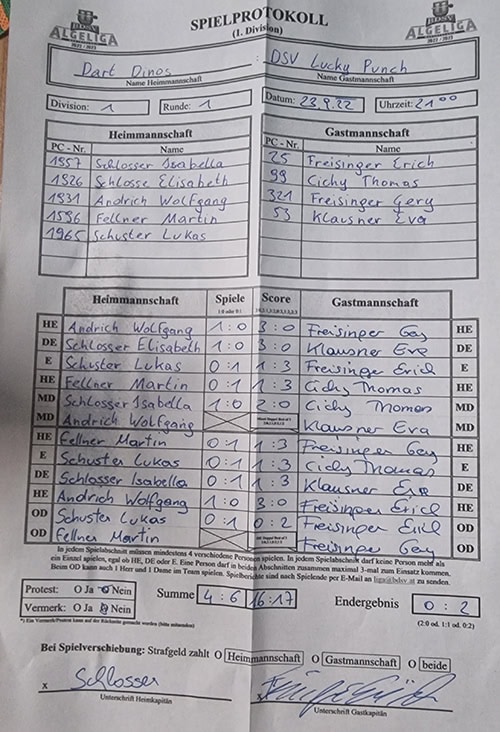 BDSV
ALGELIGA
2022 - 2023
SPIELPROTOKOLL
(1. Division)
BDSV
ALGELIGA
2022 - 2023
Dart Dinos : DSV Lucky Punch
Name Heimmannschaft Name Gastmannschaft
Division: 1 Runde: 1 Datum: 23.9.22 Uhrzeit: 21 00
Heimmannschaft Gastmannschaft
PC - Nr. Name PC - Nr. Name
1557 Schlosser Isabella 25 Freisinger Erich
1926 Schlosse Elisabeth 99 Cichy Thomas
1931 Andrich Wolfgang 321 Freisinger Gery
1596 Fellner Martin 53 Klausner Eva
1965 Schuster Lukas
Heimmannschaft Spiele Score Gastmannschaft
1:0 oder 0:1
HE Andrich Wolfgang 1:0 3:0 Freisinger Gey HE
DE Schlosser Elisabeth 1:0 3:0 Klausner Eva DE
E Schuster Lukas 0:1 1:3 Freisinge Erich E
HE Fellner Martin 0:1 1:3 Cichy Thomas HE
MD Schlosser Isabella 1:0 2:0 Cichy Thomas MD
MD Andrich Wolfgang Klausner Eva MD
HE Fellner Martin 0:1 1:3 Freisinger Gey HE
E Schuster Lukas 0:1 1:3 Cichy Thomas E
DE Schlosser Isabella 0:1 1:3 Klausner Eva DE
HE Andrich Wolfgang 1:0 3:0 Freisinger Erich HE
OD Schuster Lukas 0:1 0:2 Freisinger Erich OD
OD Fellner Martin Freisinger Gey OD
In jedem Spielabschnitt müssen mindestens 4 verschiedene Personen spielen. In jedem Spielabschnitt darf keine Person mehr als
ein Einzel spielen, egal ob HE, DE oder E. Eine Person darf in beiden Abschnitten zusammen maximal 3-mal zum Einsatz kommen.
Beim OD kann auch 1 Herr und 1 Dame im Team spielen. Spielberichte sind nach Spielende per E-Mail an liga@bdsv.at zu senden.
Protest: O Ja O Nein Summe 4:6 16:17 Endergebnis 0:2
Vermerk: O Ja O Nein (2:0 od. 1:1 od. 0:2)
*) Ein Vermerk/Protest kann auf der Rückseite gemacht werden (bitte anmerken)
Bei Spielverschiebung: Strafgeld zahlt O Heimmannschaft O Gastmannschaft O beide
x Schlosser x
Unterschrift Heimkapitän Unterschrift Gastkapitän